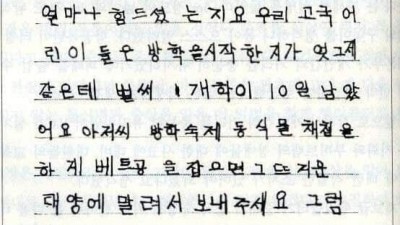 얼마나 힘드셨는지요 우리 고국 어
린이들은 방학을시작한지가 엇그제
같은데 벌써 개학이 10일 남았
어요 아저씨 방학숙제 동식물 채집을
하게 베트콩을 잡으면 그 뜨거운
태양에 말려서 보내주세요 그럼